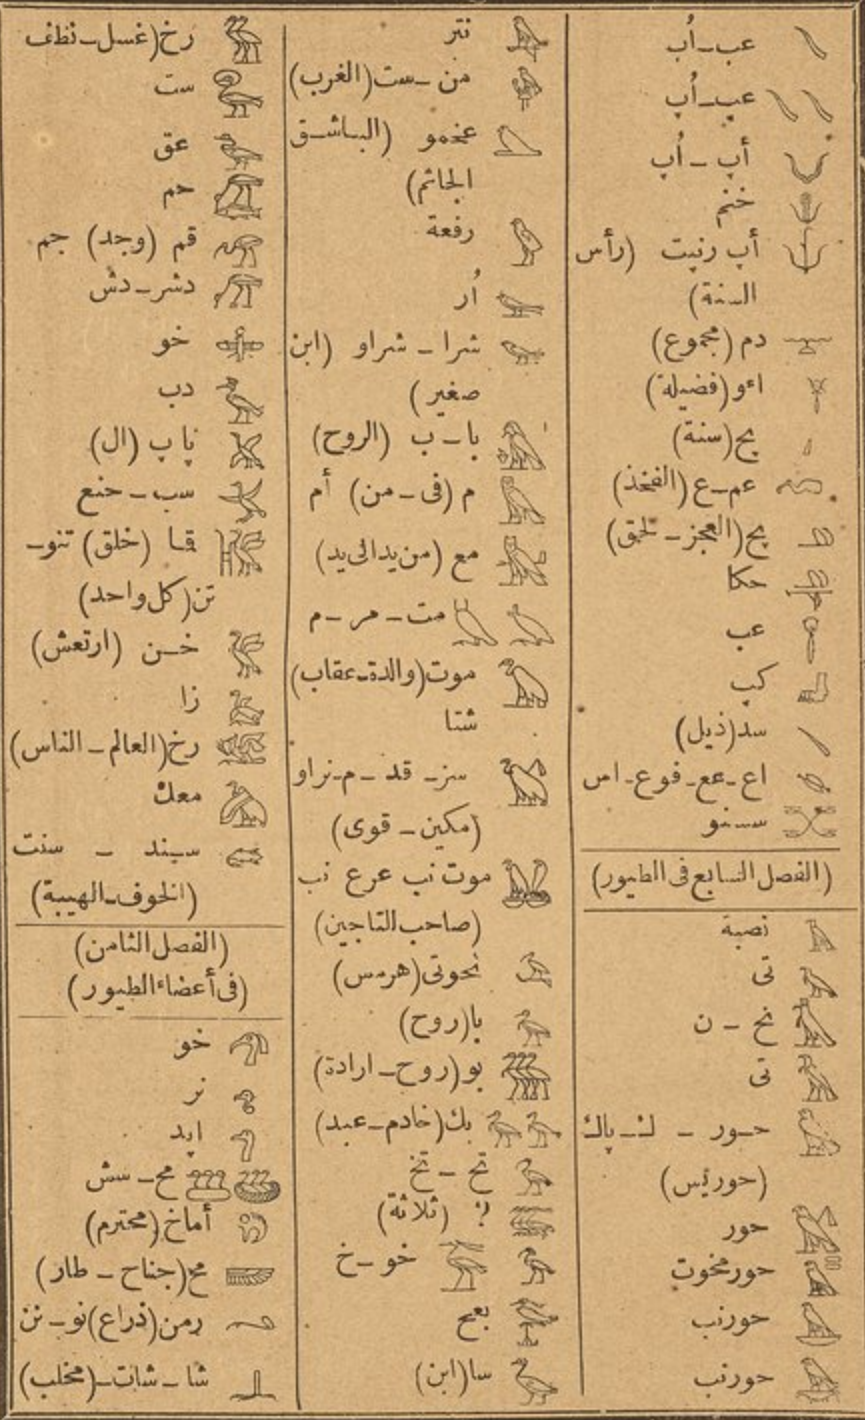 عب-أُب
عب-أُب
أپ - أُپ
خنم
أپ رنپت (رأس
السنة)
دم (مجموع)
اءو (فضيلة)
پح (سنة)
عم-ع (الفخذ)
پح (العجز - لحق)
حكا
عب
كپ
سد (ذيل)
اع-عع-فوع-اس
سسنو
(الفصل السابع فى الطيور)
نصبة
تى
نح - ن
تى
حور - ك-پاك
(حوريس)
حور
حورمخوت
حورنب
حورنب
نتر
من-ست (الغرب)
عخمو (الباشق
الجاثم)
رفعة
أُر
شرا - شراو (ابن
صغير)
با-ب (الروح)
م (فى-من) أم
مع (من يد الى يد)
مت-مر-م
موت (والدة-عقاب)
شتا
سز- قد-م-نراو
(مكين - قوى)
موت نب عرع نب
(صاحب التاجين)
تحوتى (هرمس)
با (روح)
بو (روح-ارادة)
بك (خادم-عبد)
تح - تخ
؟ (ثلاثة)
خو-خ
بعح
سا (ابن)
رخ (غسل-نظف
ست
عق
حم
قم (وجد) جم
دشر-دش
خو
دب
پا پ (ال)
سب-خنع
قا (خلق) تنو-
تن (كل واحد)
خن (ارتعش)
زا
رخ (العالم-الناس)
معك
سبند - سنت
(الخوف-الهيبة)
(الفصل الثامن)
(فى أعضاء الطيور)
خو
نر
اپد
مح-سش
أماخ (محترم)
مح (جناح - طار)
رمن (ذراع) نو-نن
شا-شات-(مخلب)